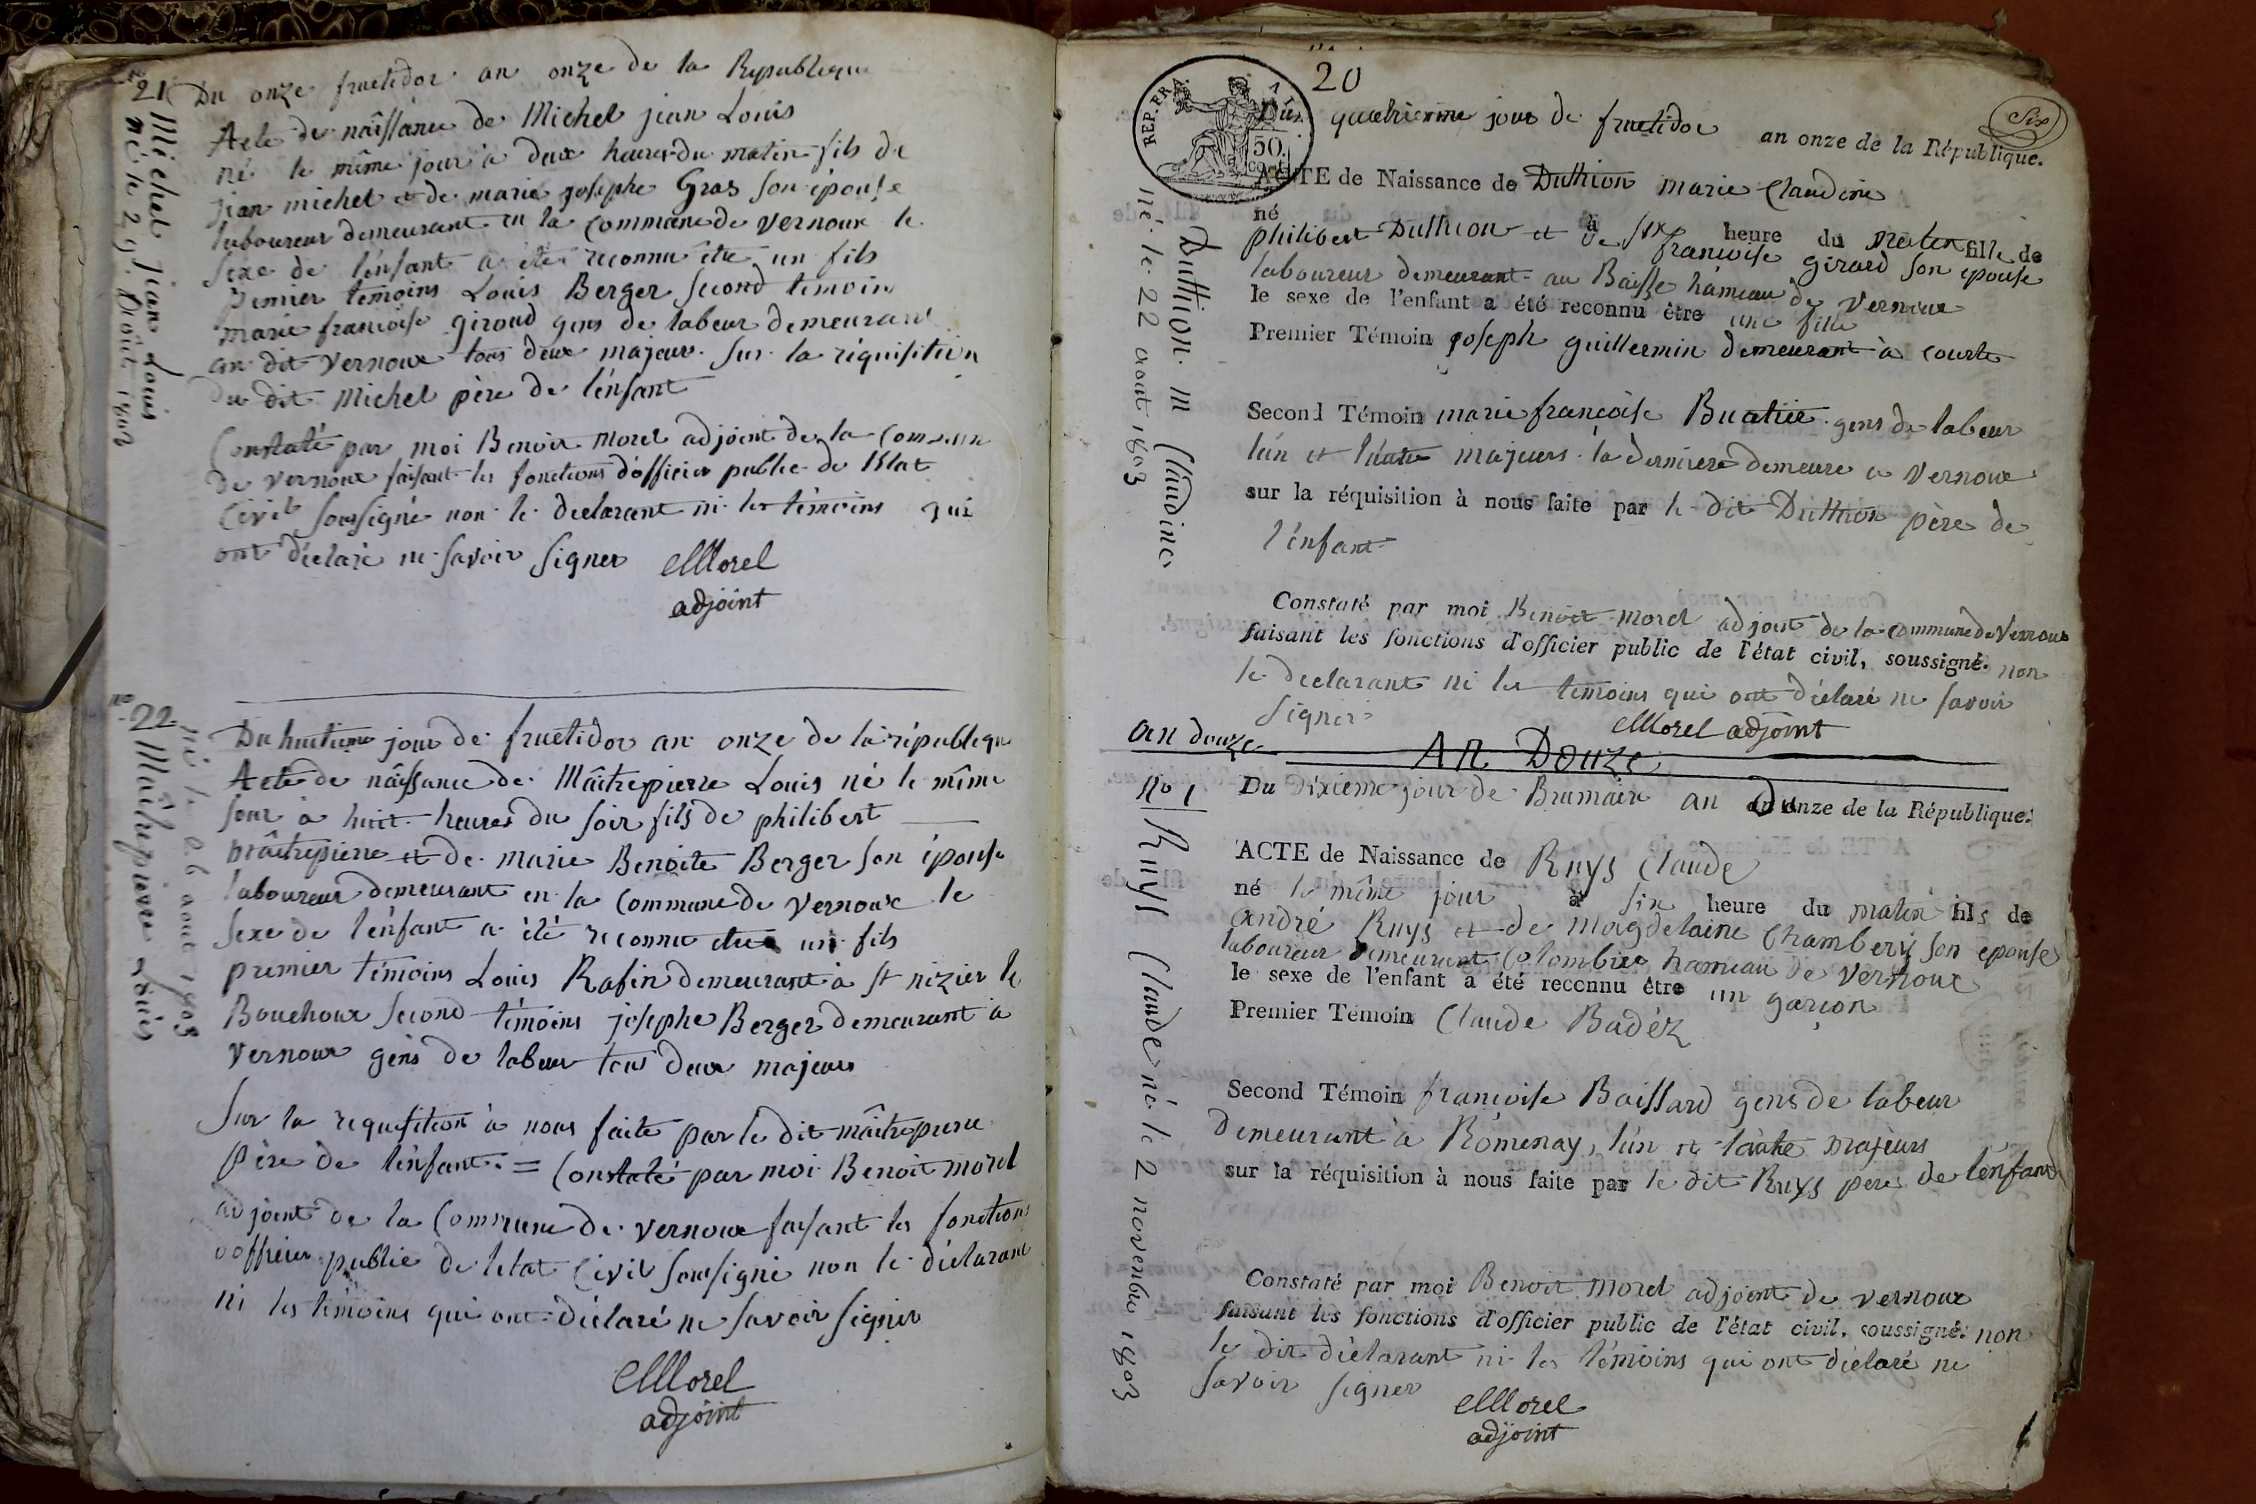 no 21
Michel jean Louis
né le 29. Août 1803
Du onze fructidor an onze de la Republique
Acte de nâissance de Michel jean Louis
né le même jour à deux heures du matin fils de
jean michel et de marie josephe Gras son épouse
laboureur demeurant en la commune de vernoux le
sexe de l'énfant a été reconnu être un fils
premier temoins Louis Berger second temoins
marie francoise giroud gens de labeur demeurant
au dit vernoux tous deux majeurs sur la réquisition
du dit Michel père de l'énfant
Constaté par moi Benoit morel adjoint de la Commune
de vernoux faisant les fonctions d'officier public de l'état
Civil soussigné non le declarant ni les témoins qui
ont déclaré ne savoir signer Morel
adjoint
no 22
Mâitrepierre Louis
né le 26 aout 1803
Du huitieme jour de fructidor an onze de la république
Acte de nâissance de Mâitrepierre Louis né le même
jour à huit heures du soir fils de philibert
mâitrepierre et de marie Benoite Berger son épouse
laboureur demeurant en la Commune de vernoux le
sexe de l'énfant a été reconnu être un fils
premier témoins Louis Rafin demeurant à st nizier le
Bouchoux second témoins josephe Berger demeurant à
vernoux gens de labeur tous deux majeurs
sur la requisition à nous faite par le dit mâitrepierre
père de l'énfant = Constaté par moi Benoit morel
adjoint de la Commune de vernoux faisant les fonctions
d'officier public de l'etat Civil soussigné non le déclarant
ni les témoins qui ont déclaré ne savoir signer
Morel
adjoint
20
REP. FRA.
50.
cent
Six
Duthion m Claudine
né le 22 aout 1803
Du quatrieme jour de fructidor an onze de la République.
ACTE de Naissance de Duthion marie Claudine
né à six heure du matin fille de
philibert Duthion et de francoise girard son epouse
laboureur demeurant au Baisse hameau de vernoux
le sexe de l'enfant a été reconnu être une fille
Premier Témoin joseph guillermin demeurant à courte
Second Témoin marie françoise Buatiée gens de labeur
l'un et l'autre majeurs la derniere demeure a vernoux
sur la réquisition à nous faite par le dit Duthion père de
l'énfant
Constaté par moi Benoit morel adjoint de la commune de Vernoux
faisant les fonctions d'officier public de l'état civil, soussigné. non
le declarant ni les temoins qui ont déclaré ne savoir
signer
Morel adjoint
an douze
An Douze
No 1
Ruys Claude né le 2 novembre 1803
Du dixieme jour de Brumaire an Du onze de la République.
ACTE de Naissance de Ruys Claude
né le même jour à six heure du matin fils de
andré Ruys et de magdelaine Chambery son epouse
laboureur demeurant Colombier hameau de vernoux
le sexe de l'enfant a été reconnu être un garçon
Premier Témoin Claude Badéz
Second Témoin francoise Baissard gens de labeur
demeurant à Romenay, l'un et l'autre majeurs
sur la réquisition à nous faite par le dit Ruys pere de l'énfant
Constaté par moi Benoit morel adjoint de vernoux
faisant les fonctions d'officier public de l'état civil, soussigné. non
le dit déclarant ni les témoins qui ont déclaré ne
savoir signer
Morel
adjoint